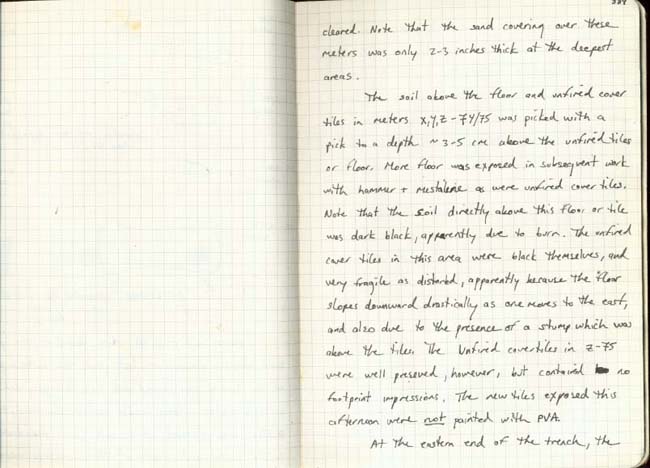 cleared. Note that the sand covering over these
meters was only 2-3 inches thick at the deepest
areas.
The soil above the floor and unfired cover
tiles in meters X,Y,Z-74/75 was picked with a
pick to a depth ~3-5 cm above the unfired tiles
or floor. More floor was exposed in subsequent work
with hammer + as were unfired cover tiles.
Note that the soil directly above this floor or tile
was dark black, apparently due to burn. The unfired
cover tiles in this area were black themselves, and
very fragile as distorted, apparently because the floor
slopes downward drastically as one moves to the east,
and also due to the presence of a stump which was
above the tiles. The Unfired covertiles in Z-75
were well preseved, however, but contained no
footprint impressions. The new tiles exposed this
afternoon were not painted with PVA.
At the eastern end of the trench, the